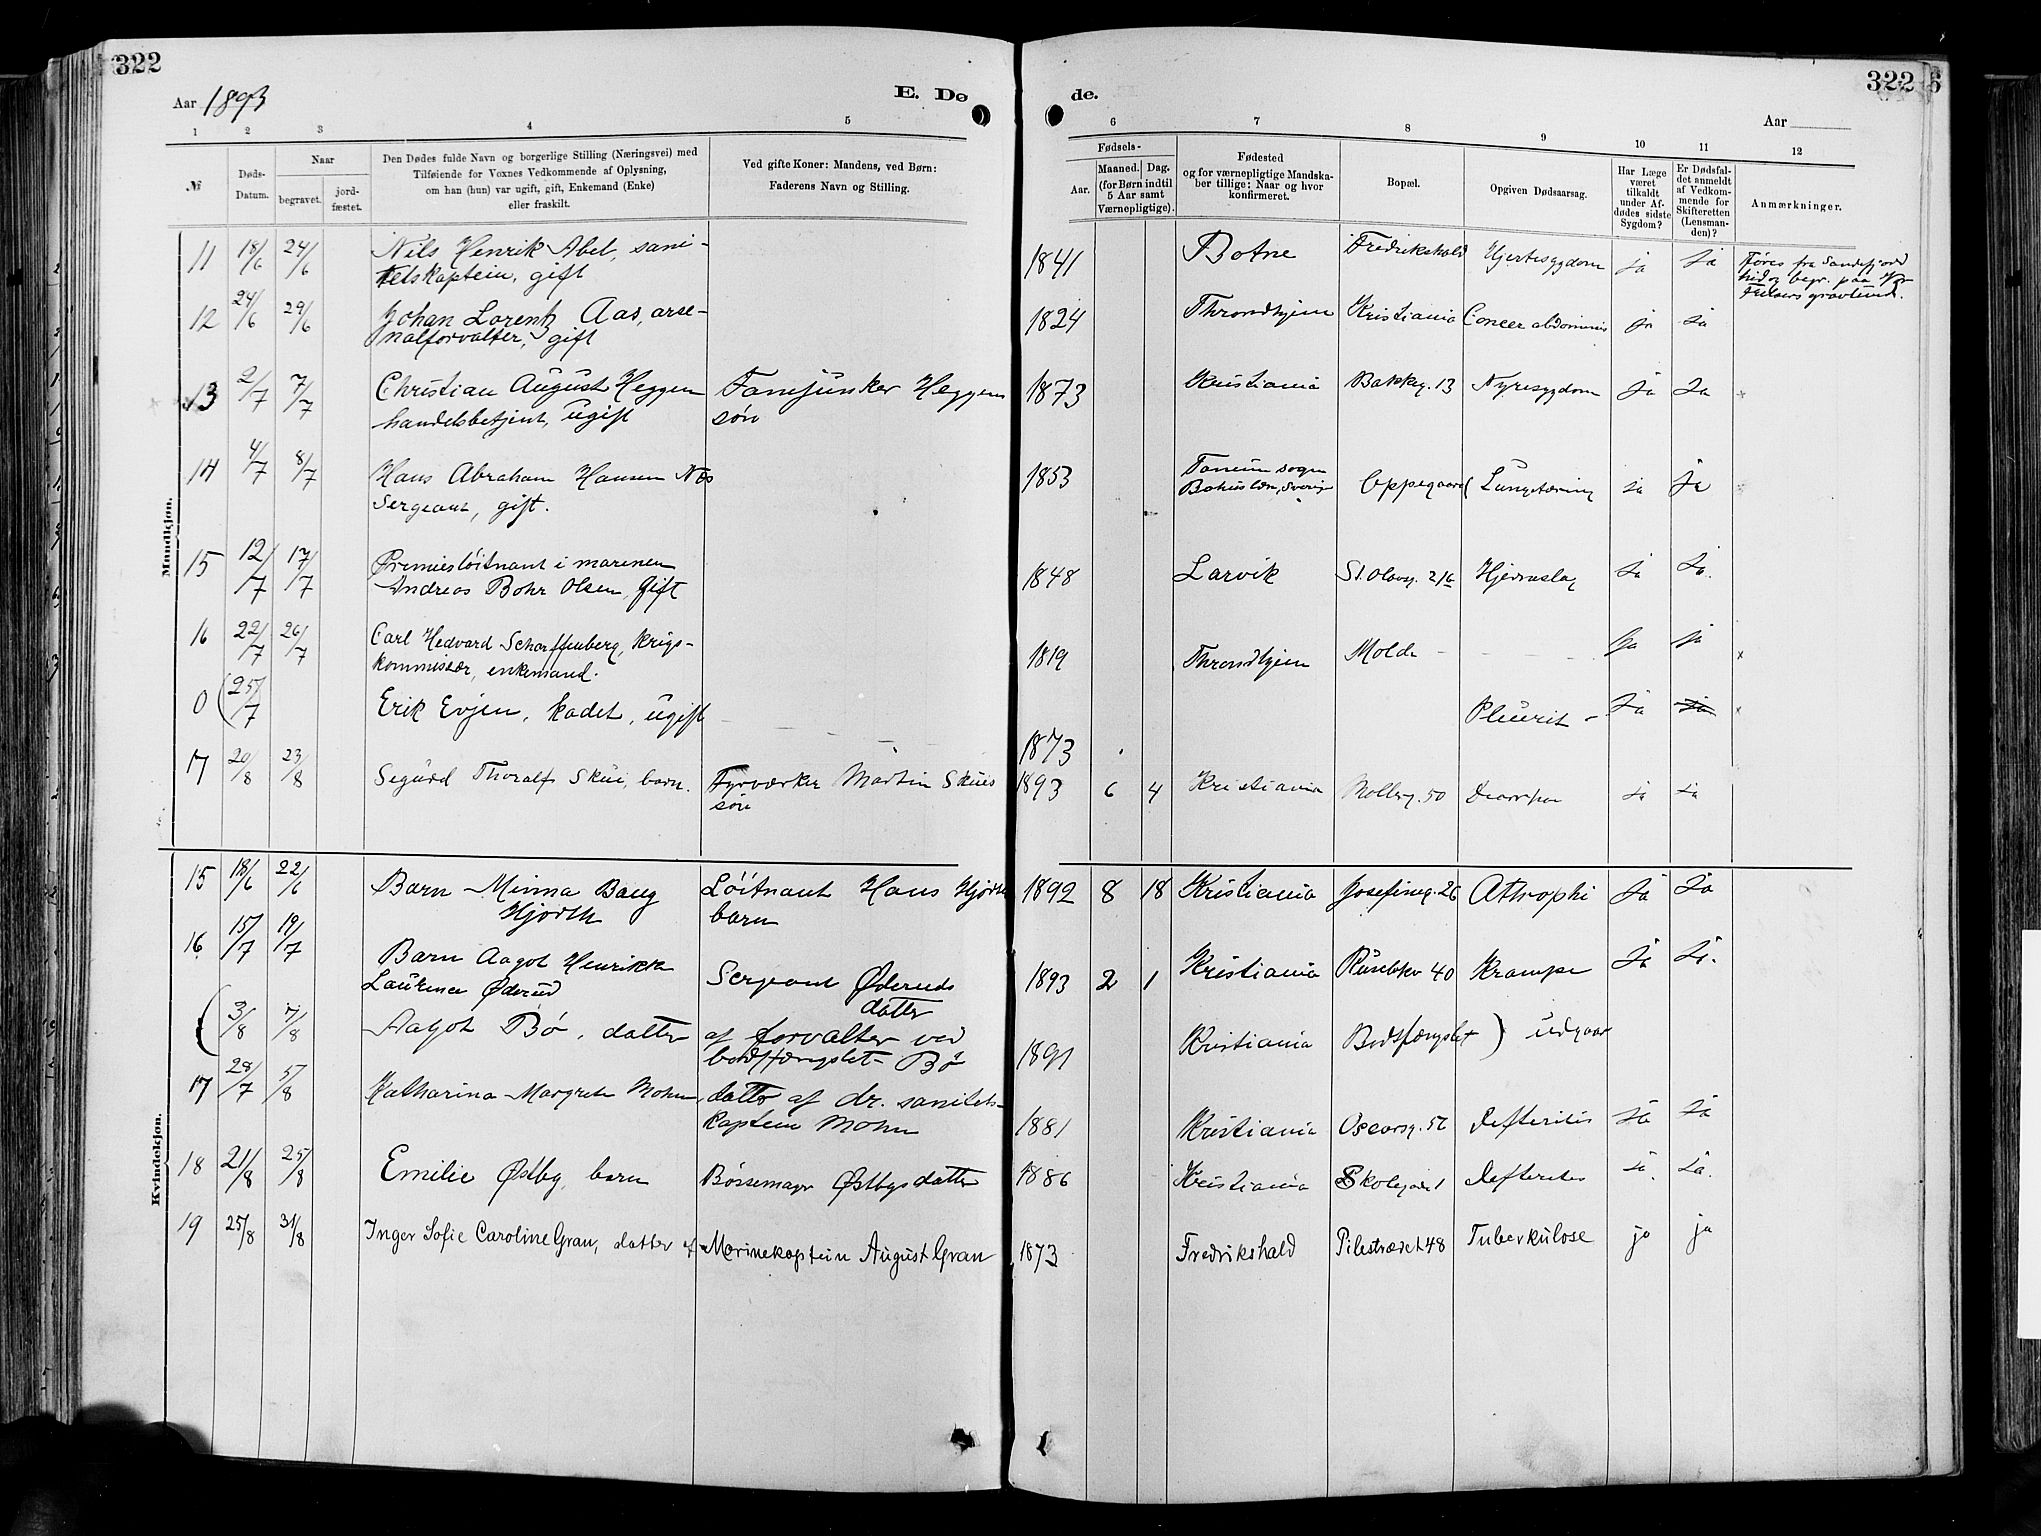 322
322
6
Aar 1893
E. Dø
de.
Aar
1 2 3 4 5
6 7 8 9 10 11 12
№
Døds-
Datum.
Naar
begravet.
jord-
fæstet.
Den Dødes fulde Navn og borgerlige Stilling (Næringsvei) med
Tilføiende for Voxnes Vedkommende af Oplysning,
om han (hun) var ugift, gift, Enkemand (Enke)
eller fraskilt.
Ved gifte Koner: Mandens, ved Børn:
Faderens Navn og Stilling.
Fødsels-
Aar.
Maaned. Dag.
(for Børn indtil
5 Aar samt
Værnepligtige).
Fødested
og for værnepligtige Mandska-
ber tillige: Naar og hvor
konfirmeret.
Bopæl.
Opgiven Dødsaarsag.
Har Læge
været
tilkaldt
under Af-
dødes sidste
Sygdom?
Er Dødsfal-
det anmeldt
af Vedkom-
mende for
Skifteretten
(Lensman-
den)?
Anmærkninger.
Mandkjøn.
11 18/6 24/6 Nils Henrik Abel, sani-
tetskaptein, gift
1841 Botne Fredrikshald Hjertesygdom ja ja
Føres fra Sandefjord
hid og begr. paa Vor
Frelsers gravlund.
12 24/6 29/6 Johan Lorentz Aas, arse-
nalforvalter, gift
1824 Throndhjem Kristiania Cancer abdominis ja ja
13 2/7 7/7 Christian August Heggem
handelsbetjent, ugift
Fanejunker Heggems
søn
1873 Kristiania Bakkeg. 13 Nyresygdom ja ja
14 4/7 8/7 Hans Abraham Hansen Næs
Sergeant, gift.
1853 Tanum sogn
Bohuslæn, Sverige
Oppegaard Lungetæring ja ja
15 12/7 17/7 Premierløitnant i marinen
Andreas Bohr Olsen, gift
1848 Larvik St. Olavsg. 21b Hjerneslag ja ja.
16 22/7 26/7 Carl Hedvard Scharffenberg, krigs-
kommissær, enkemand.
1819 Throndhjem Molde - ja ja
0 (25/7 Erik Evjen, kadet, ugift
1873 Pleurit - ja ja
17 20/8 23/8 Sigurd Thoralf Skui, barn.
Fyrværker Martin Skuis
søn
1893 6 4 Kristiania Mollerg. 50 Diarrhoe ja ja
Kvindekjøn.
15 18/6 22/6 Barn Minna Bang
Hjorth
Løitnant Hans Hjorth
barn
1892 8 18 Kristiania Josefineg. 26 Athrophi ja ja
16 15/7 19/7 Barn Aagot Henrikke
Laurence Øderud
Sergeant Øderuds
datter
1893 2 1 Kristiania Ruseløkv 40 Krampe ja ja.
(3/8 7/8 Aagot Bø, datter
af forvalter ved
bodsfængslet Bø
1891 Kristiania Bodsfængslet) udgaar
17 28/7 5/8 Katharina Margrete Mohn,
datter af dr. sanitets-
kaptein Mohn
1881 Kristiania Oscarsg. 57 Defteritis ja ja
18 21/8 25/8 Emilie Østby, barn
Bøssemager Østbys datter
1886 Kristiania Skolegade 1 Defterites ja. ja.
19 25/8 31/8 Inger Sofie Caroline Gran, datter af
Marinekaptein August Gran
1873 Fredrikshald Pilestrædet 48 Tuberkulose ja ja